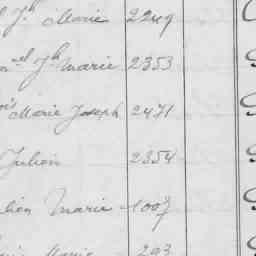 Jh Marie 2249
el Jh Marie 2353
ois Marie Joseph 2471
Julien 2354
lien Marie 1007
Marie 293